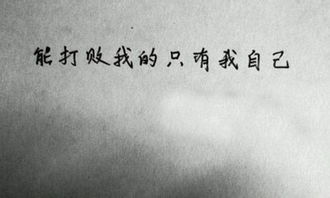 能打败我的只有我自己